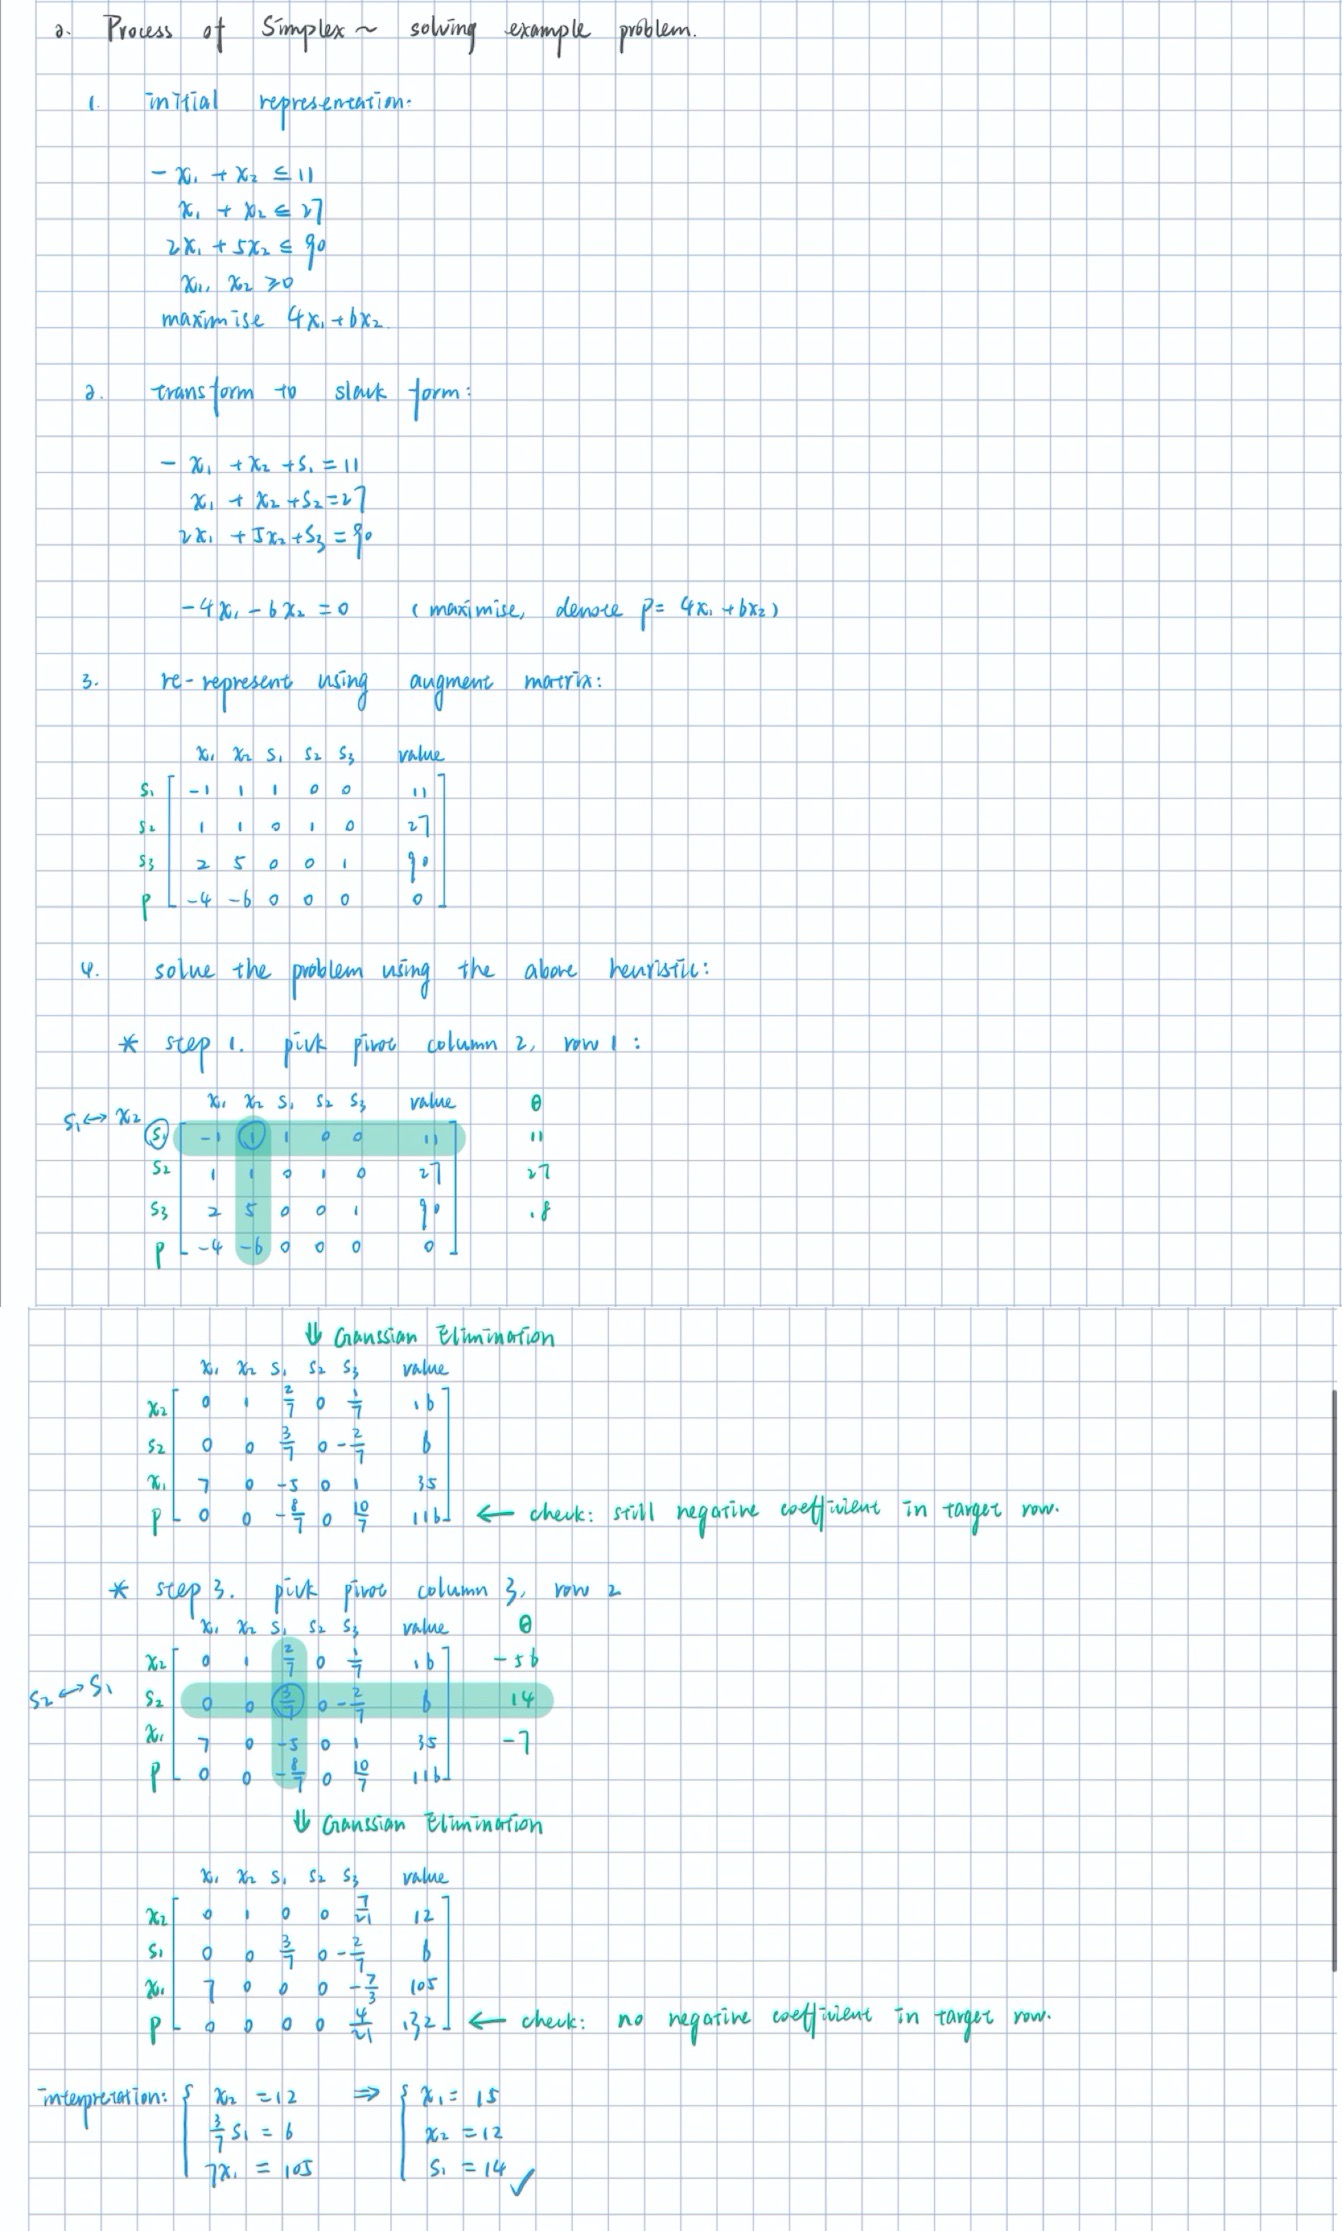 2. Process of Simplex ~ solving example problem.
1. initial representation:
- x₁ + x₂ ≤ 11
x₁ + x₂ ≤ 27
2x₁ + 5x₂ ≤ 90
x₁, x₂ ≥ 0
maximise 4x₁ + 6x₂
2. transform to slack form:
- x₁ + x₂ + s₁ = 11
x₁ + x₂ + s₂ = 27
2x₁ + 5x₂ + s₃ = 90
-4x₁ - 6x₂ = 0 (maximise, denote p = 4x₁ + 6x₂)
3. re-represent using augment matrix:
x₁ x₂ s₁ s₂ s₃ value
s₁ -1 1 1 0 0 11
s₂ 1 1 0 1 0 27
s₃ 2 5 0 0 1 90
p -4 -6 0 0 0 0
4. solve the problem using the above heuristic:
* step 1. pick pivot column 2, row 1:
x₁ x₂ s₁ s₂ s₃ value θ
s₁ ↔ x₂ s₁ -1 1 1 0 0 11 11
s₂ 1 1 0 1 0 27 27
s₃ 2 5 0 0 1 90 18
p -4 -6 0 0 0 0
⇓ Gaussian Elimination
x₁ x₂ s₁ s₂ s₃ value
x₂ 0 1 2/7 0 1/7 16
s₂ 0 0 3/7 0 -2/7 6
x₁ 7 0 -5 0 1 35
p 0 0 -8/7 0 10/7 116 ← check: still negative coefficient in target row.
* step 3. pick pivot column 3, row 2
x₁ x₂ s₁ s₂ s₃ value θ
x₂ 0 1 2/7 0 1/7 16 -56
s₂ ↔ s₁ s₂ 0 0 3/7 0 -2/7 6 14
x₁ 7 0 -5 0 1 35 -7
p 0 0 -8/7 0 10/7 116
⇓ Gaussian Elimination
x₁ x₂ s₁ s₂ s₃ value
x₂ 0 1 0 0 7/21 12
s₁ 0 0 3/7 0 -2/7 6
x₁ 7 0 0 0 -7/3 105
p 0 0 0 0 4/21 132 ← check: no negative coefficient in target row.
interpretation: { x₂ = 12 ⇒ { x₁ = 15
3/7 s₁ = 6 x₂ = 12
7x₁ = 105 s₁ = 14 ✓